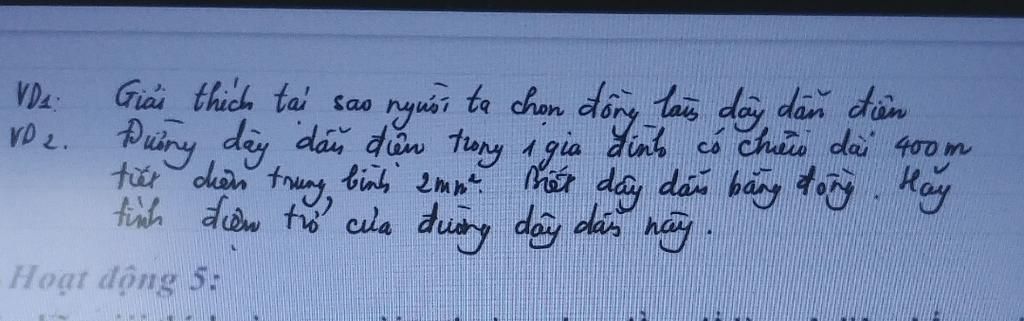 VD1: Giải thích tại sao người ta chọn đồng làm dây dẫn điện
VD2. Đường dây dẫn điện trong 1 gia đình có chiều dài 400m
tiết diện trung bình 2mm². Biết dây dẫn bằng đồng. Hãy
tính điện trở của đường dây dẫn này.
Hoạt động 5: